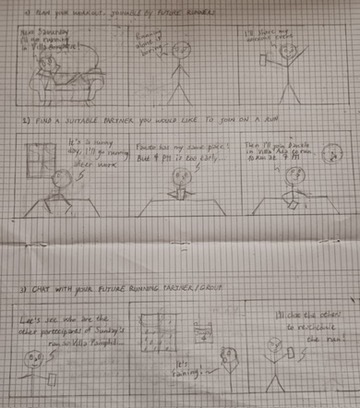 1) PLAN YOUR WORKOUT, JOINABLE BY FUTURE RUNNERS
Next Saturday
I'll go running
in Villa Pamphili!
Running
alone is
boring..
I'll share my
running event
2) FIND A SUITABLE PARTNER YOU WOULD LIKE TO JOIN ON A RUN
It's a sunny
day, I'll go running
after work
has my same place!
But 4 PM is too early..
Then I'll join
in Villa Ada to run
at 7 PM
3) CHAT WITH YOUR FUTURE RUNNING PARTNER/GROUP
Let's see who are the
other participants of Sunday's
run at Villa Pamphili...
It's
raining!..
I'll ask the others
to reschedule
the run!